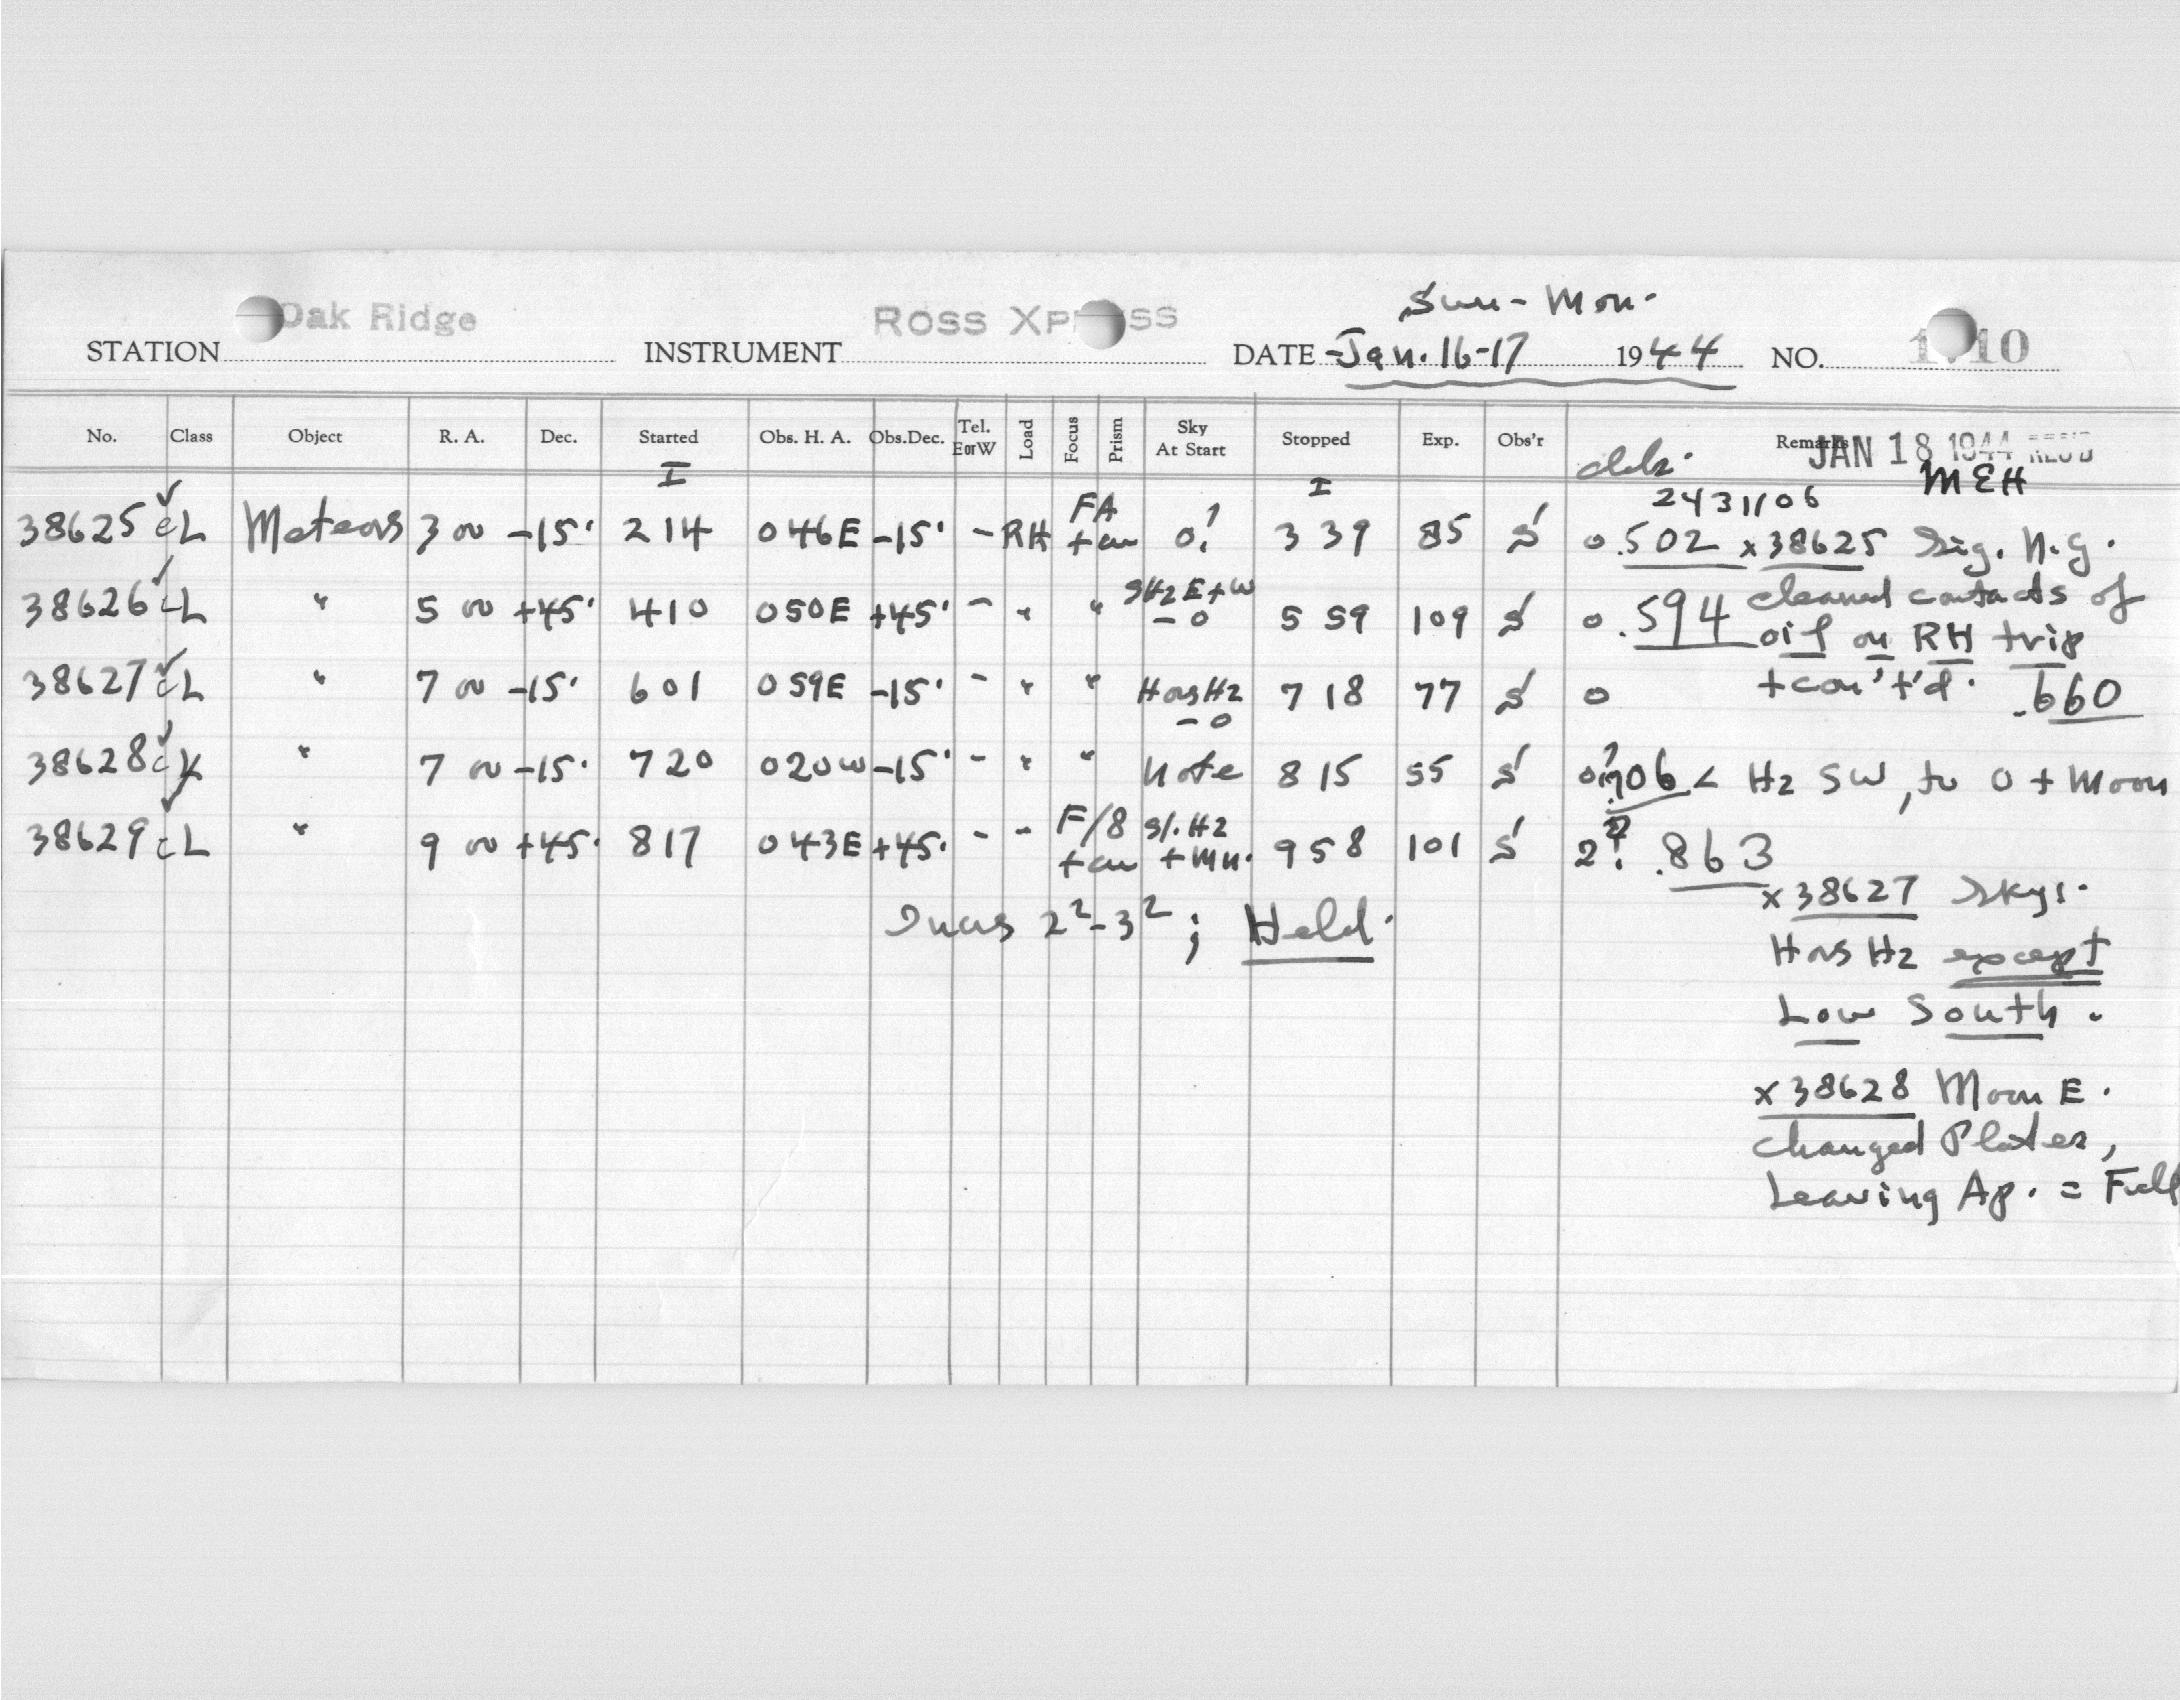 Sun - Mon.
STATION Oak Ridge INSTRUMENT ROSS DATE Jan. 16-17 1944 NO.
No. Class Object R. A. Dec. Started Obs. H. A. Obs.Dec. Tel. E or W Load Focus Prism Sky At Start Stopped Exp. Obs'r Remarks
JAN 18 1944 REC'D
I I MEH
2431106
38625 cL Meteors 3 00 -15° 2 14 0 46E -15° - RH FA 0! 3 39 85 S 0 .502 x 38625 Sig. N.G.
38626 cL " 5 00 +45° 4 10 0 50E +45° - " " Hz E+W - 0 5 59 109 S 0 .594 cleaned contacts of
oil on RH trip
38627 cL " 7 00 -15° 6 01 0 59E -15° - " " Has Hz - 0 7 18 77 S 0 + con't'd. .660
38628 " 7 00 -15° 7 20 0 20W -15° - " " Note 8 15 55 S .706 < Hz SW, to 0 + Moon
38629 cL " 9 00 +45° 8 17 0 43E +45° - - F/8 sl. Hz + Mn. 9 58 101 S 2? .863
2²-3²; Held.
x 38627 Sky:
Has Hz except
Low South.
x 38628 Moon E.
Changed Plates,
Leaving Ap. = Full